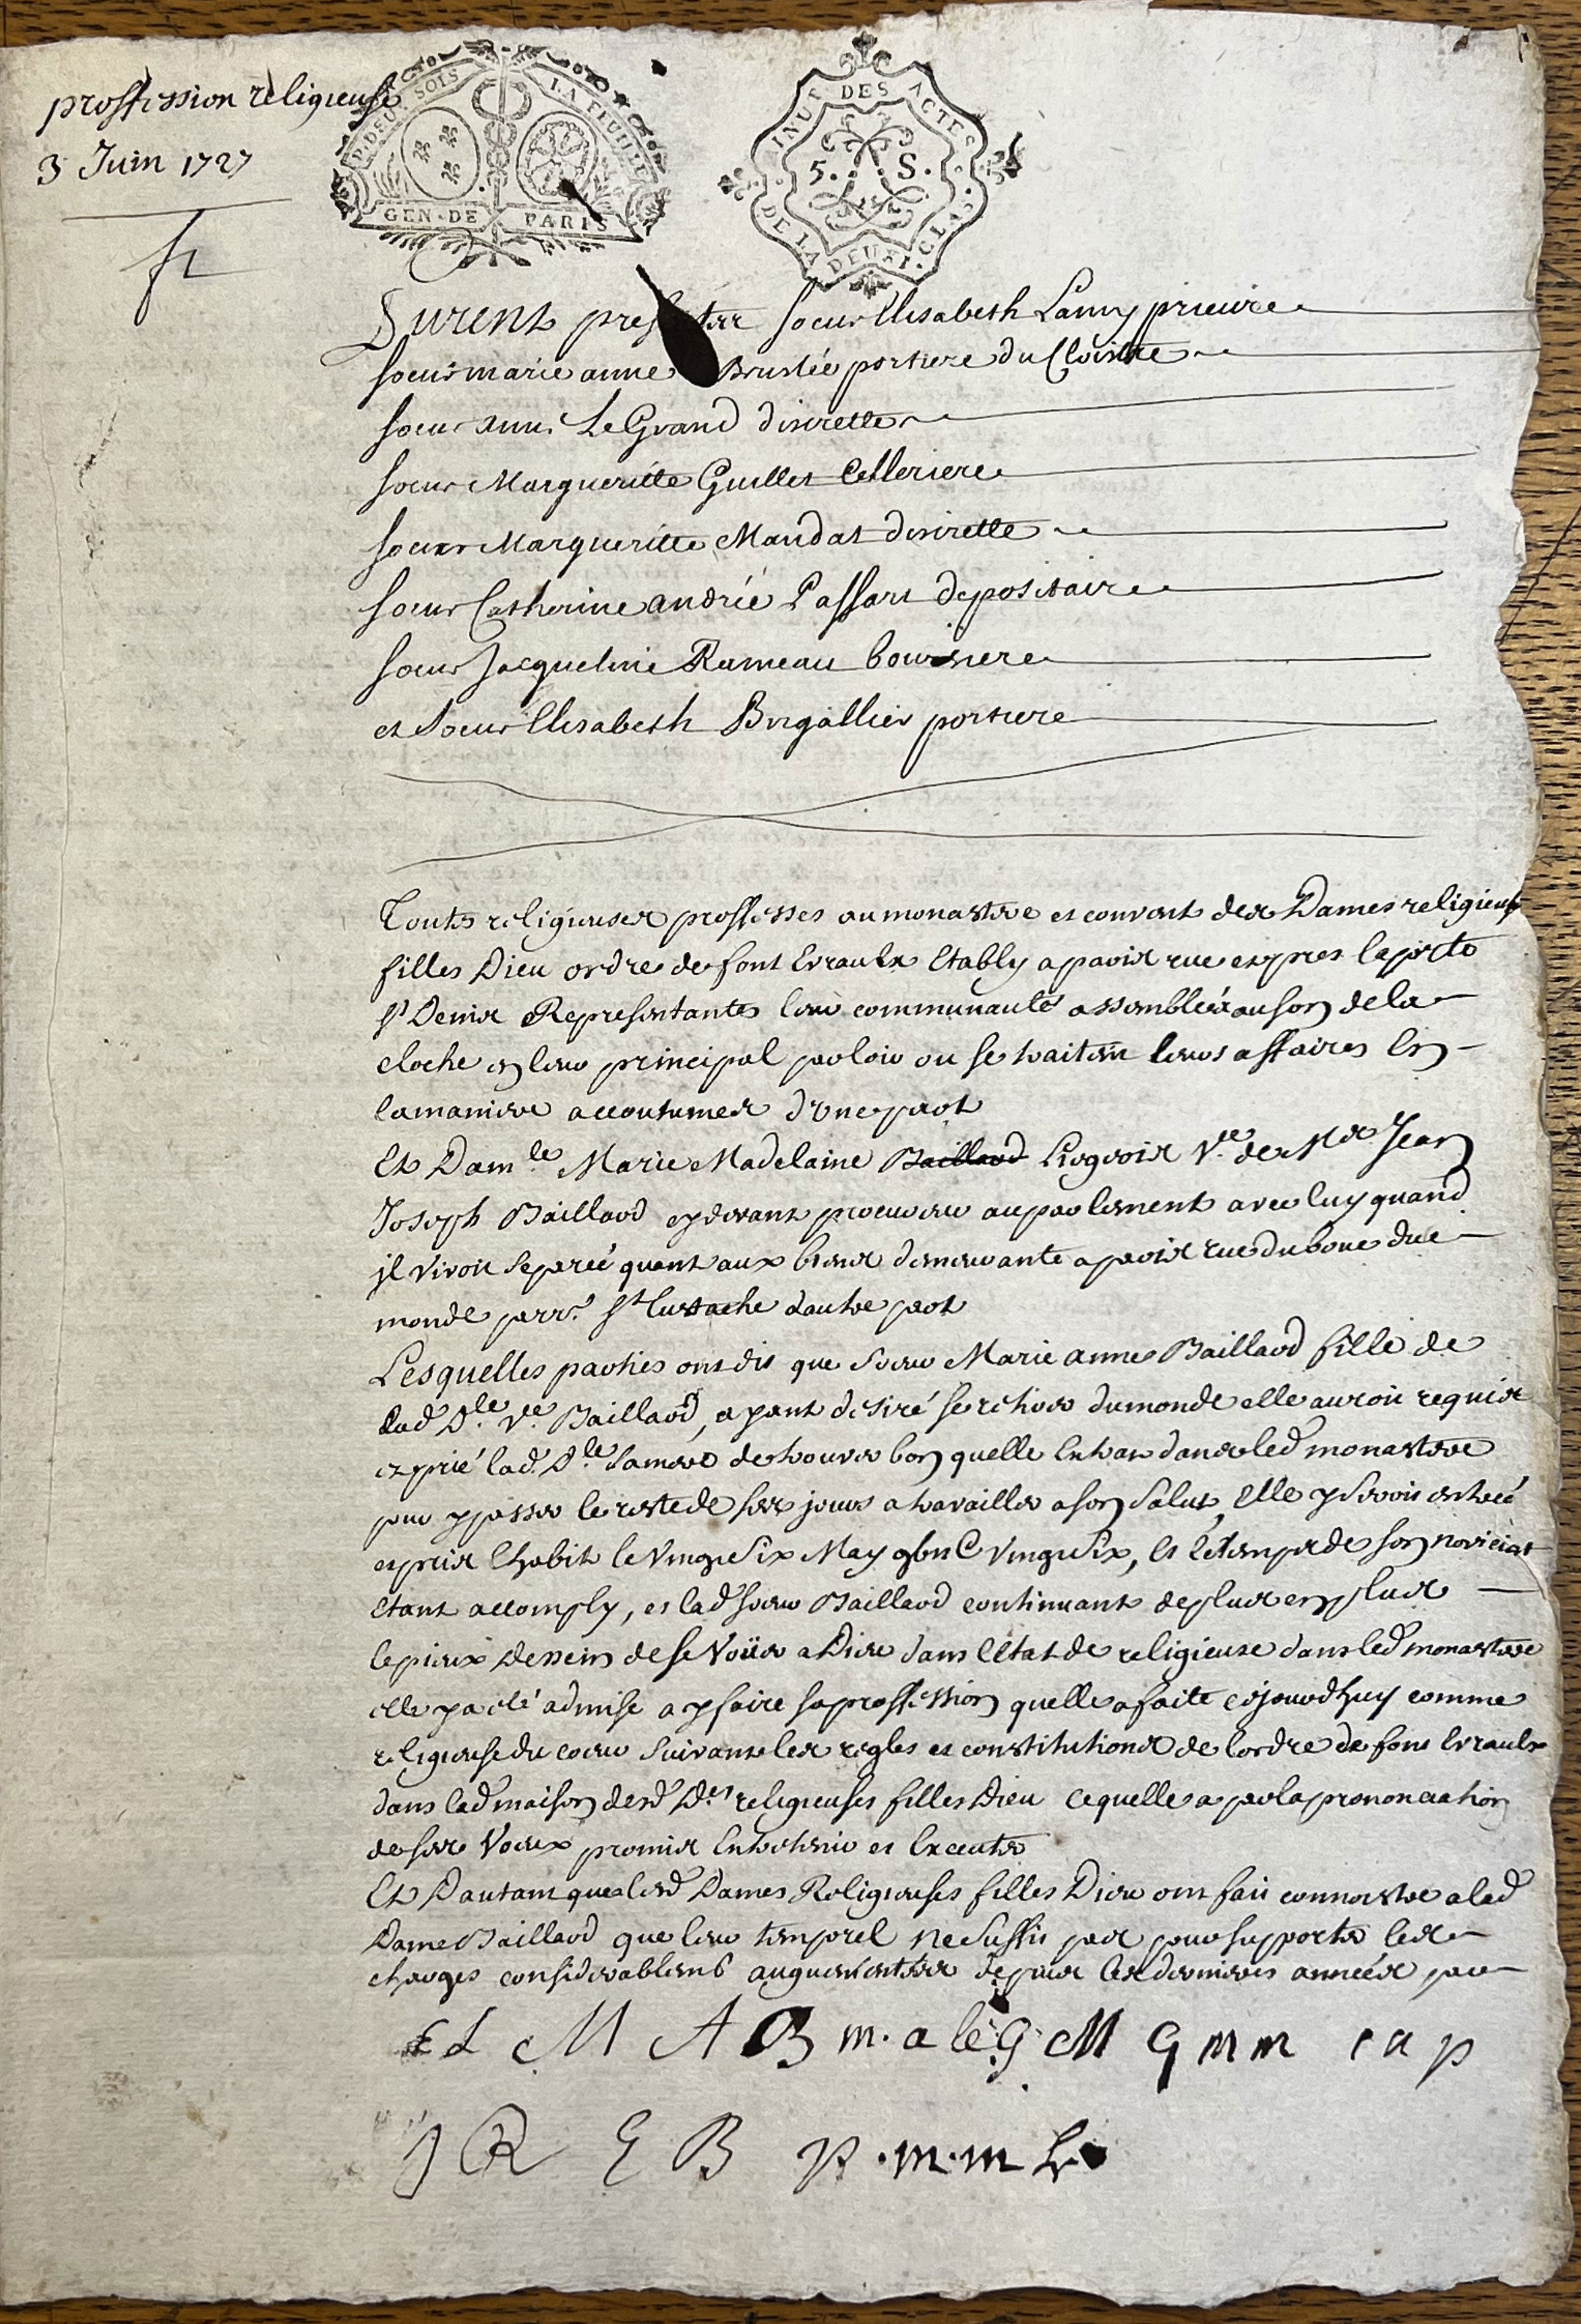 proffession religieuse
3 Juin 1727
P. DEUX SOLS LA FEUILLE
GEN. DE PARIS
MINUT. DES ACTES
5. S.
DE LA DEUXI. CLAS.
Furent presentes soeur Elisabeth Lamy prieure
soeur marie anne Bruslée portiere du Cloistre
soeur anne Le Grand discrette
soeur Margueritte Guillet Celleriere
soeur Margueritte Mandat discrette
soeur Catherine andrée Passart depositaire
soeur Jacqueline Rameau boursiere
et Soeur Elisabeth Brigallier portiere
Toutes religieuses proffesses au monastere et couvent des Dames religieuses
filles Dieu ordre de font Evrault Etably a paris rue et pres la porte
st Denis Representantes leur communauté assemblées au son de la
cloche en leur principal parloir ou se traitent leurs affaires En
la maniere accoutumée d'une part
Et Dam.le Marie Madelaine Baillard V.e de M.e Jean
Joseph Baillard cy devant procureur au parlement avec luy quand
jl vivoit Separée quant aux biens demeurante a paris rue du bout du
monde parr.e st Eustache dautre part
Lesquelles parties ont dit que Soeur Marie anne Baillard fille de
lad D.le V.e Baillard, ayant desiré se retirer du monde elle auroit requis
et prié lad. D.le Sa mere de trouver bon quelle Entrat dans led monastere
pour y passer le reste de ses jours a travailler a son Salut, Elle y seroit entrée
et pris Lhabit le Vingt Six May gbii C Vingt Six, Et le temps de son noviciat
etant accomply, et lad soeur Baillard continuant de plus en plus
le pieux dessein de se Voüer a Dieu dans l'Etat de religieuse dans led monastere
elle y a eté admise a y faire sa proffession quelle a faite cejourdhuy comme
religieuse du coeur Suivant les regles et constitutions de lordre de font Evrault
dans lad maison desd D.es religieuses filles Dieu ce quelle a par la prononciation
de ses Voeux promis Entretenir et Executer
Et Dautant que lesd Dames Religieuses filles Dieu ont fait connoistre a lad
Dame Baillard que leur temporel ne Suffit pas pour supporter les
charges considerablemt augmentées depuis les dernieres années, par
E L M A B m. a le G M G m m c a p
J R E B p. m. m L